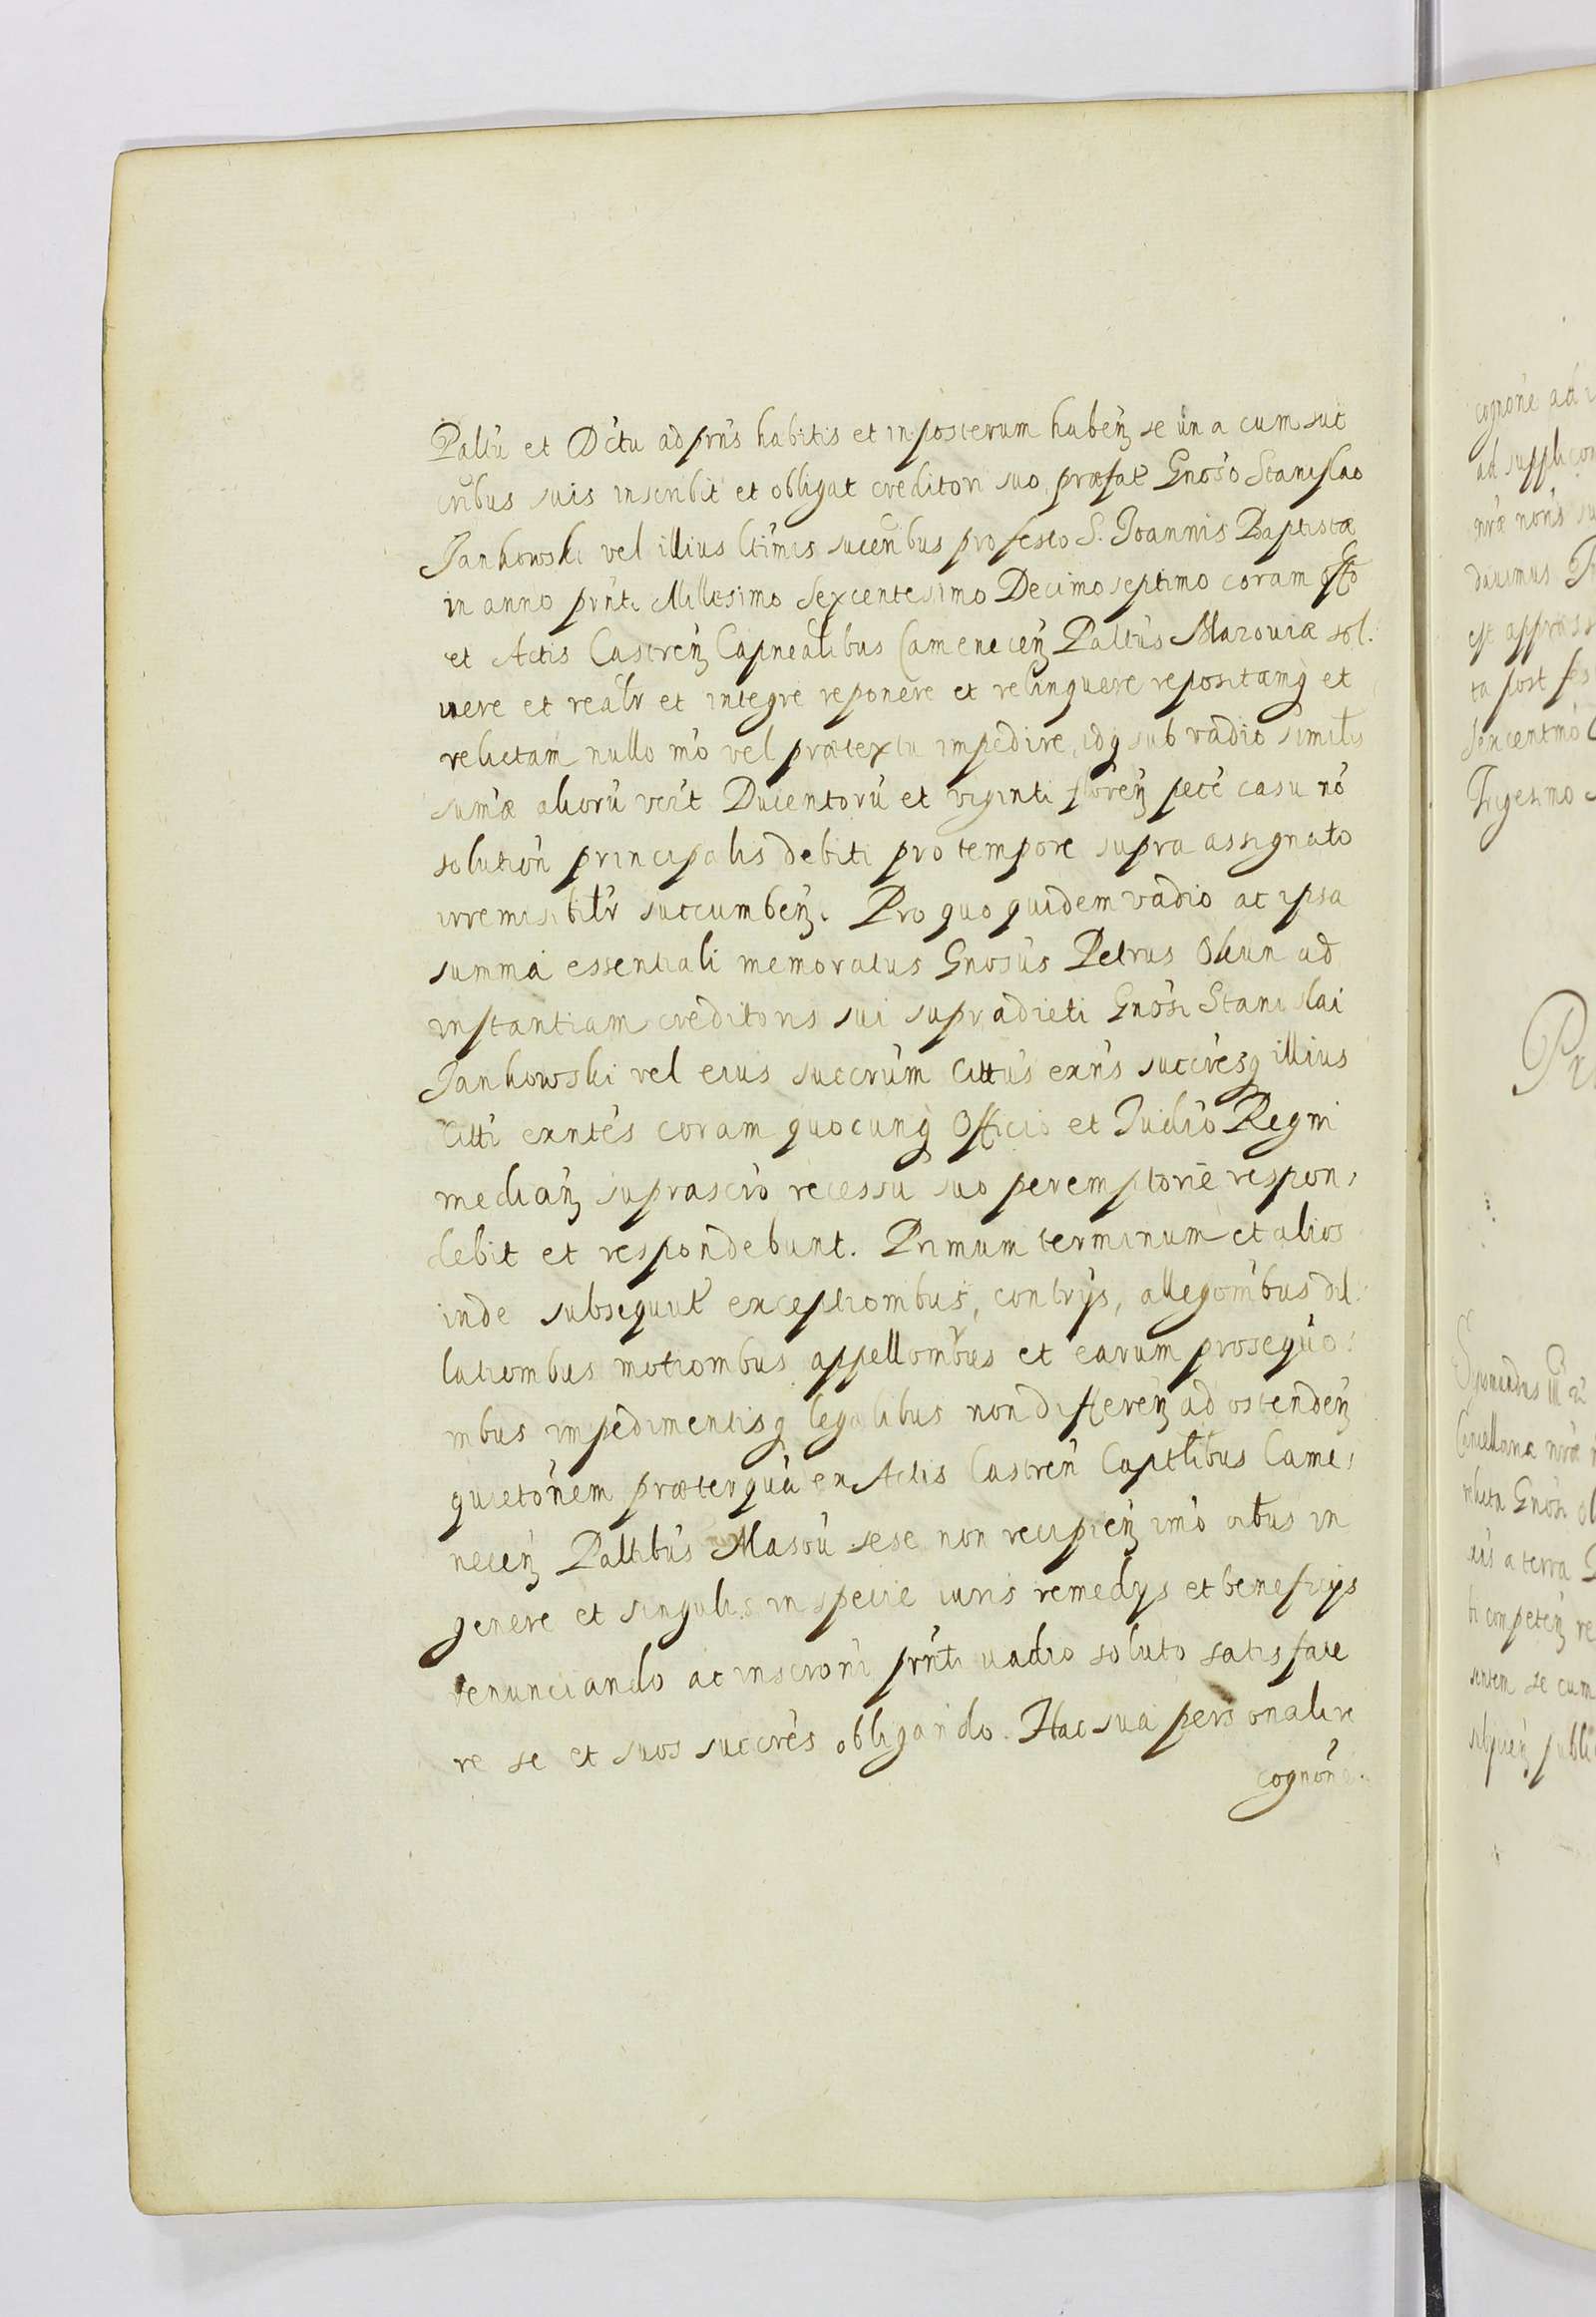 Paltu et Dctu ad prns habitis et in posterum haben̄ se una cum suc
crībus suis inscribit et obligat creditori suo præfat Gnoso Stanislao
Jankowski vel illius ltimis succribus pro festo S. Joannis Baptistæ
in anno prnti Millesimo Sexcentesimo Decimo septimo coram offo
et Actis Castren̄ Capnealibus Camenecen̄ Paltus Mazoviæ sol:
uere et realr et integre reponere et relinquere repositamq et
relictam nullo mo vel prætextu impedire, idq sub vadio similis
sumæ aliorū verit Ducentorū et viginti floren̄ pecē casu nō
solution principalis debiti pro tempore supra assignato
irremisibilr succumben̄. Pro quo quidem vadio ac ipsa
summa essentiali memoratus Gnosus Petrus Okun ad
instantiam creditoris sui supradicti Gnosi Stanislai
Jankowski vel eius succrum Cittus exns succresq illius
Citti exntes coram quocunq Officio et Iudio Regni
median̄ suprascro recessu suo peremptorie respon:
debit et respondebunt. Primum terminum et alios
inde subsequut exceptiombus, contrijs, allegombus dil:
latiombus motiombus appellombus et earum prosequo:
mbus impedimentisq legalibus non differen̄ ad ostenden̄
quietonem præterquā ex Actis Castren Captlibus Came:
necen̄ Paltibus Masou sese non recipien̄ imo oibus in
genere et singulis in specie iuris remedijs et beneficijs
renunciando ac inscroni prnti vadio soluto satisface
re se et suos succres obligando. Hac sua personali re
cognone.
cognone ad
ad supplicon
nræ noris su
dauimus
est appræss
ta post fes
Sexcentmo
Trigesimo
Sigismundus III
Cancellariæ nræ
Gnosi
a terra
competen̄ re
se cum
publi